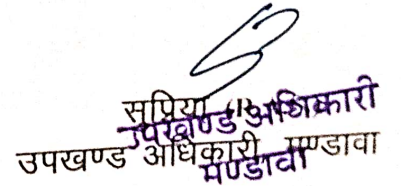 सुप्रिया
उपखण्ड अधिकारी
उपखण्ड अधिकारी मण्डावा
मण्डावा